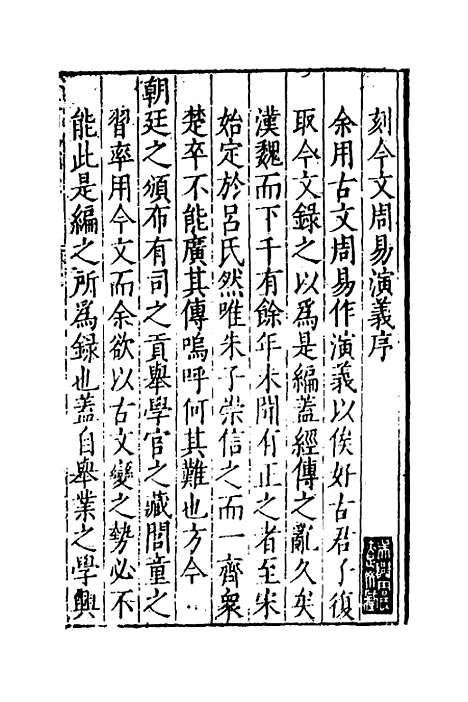 刻今文周易演義序
余用古文周易作演義以俟好古君子復
取今文錄之以爲是編蓋經傳之亂久矣
漢魏而下千有餘年未聞有正之者至宋
始定於呂氏然唯朱子崇信之而一齊衆
楚卒不能廣其傳嗚呼何其難也方今
朝廷之頒布有司之貢舉學官之藏閭童之
習率用今文而余欲以古文變之勢必不
能此是編之所爲録也蓋自舉業之學興